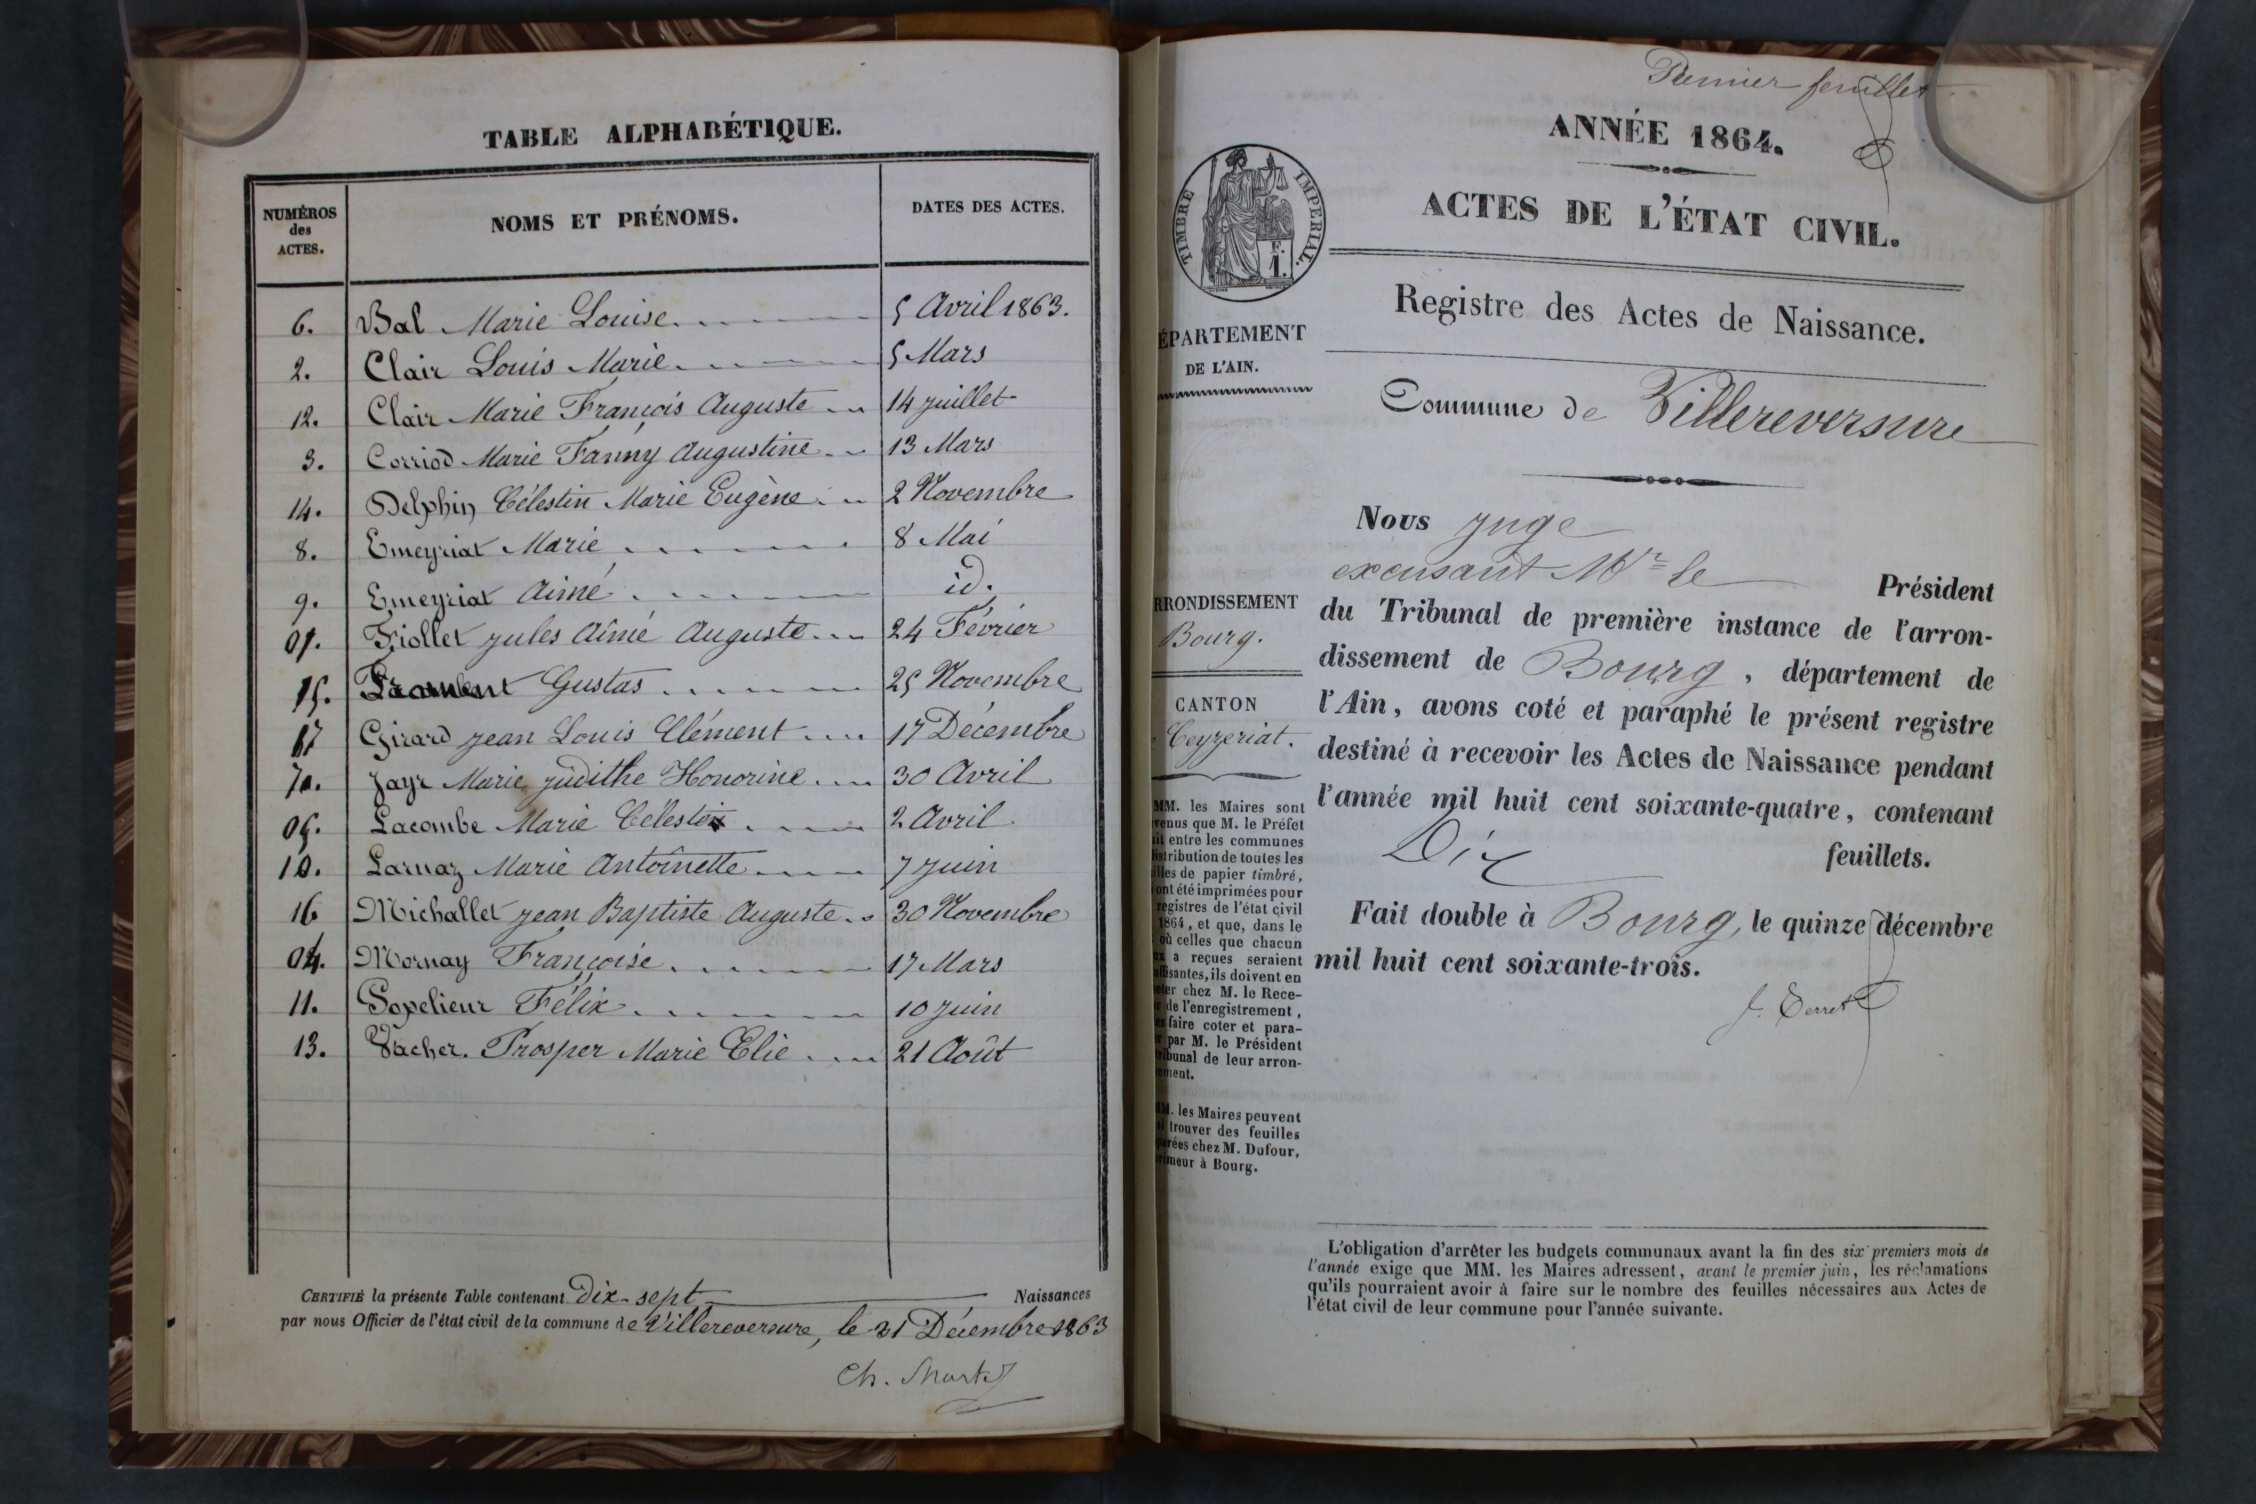 TABLE ALPHABÉTIQUE.
NUMÉROS des ACTES. NOMS ET PRÉNOMS. DATES DES ACTES.
6. Bal Marie Louise 5 Avril 1863.
2. Clair Louis Marie 5 Mars
12. Clair Marie François Auguste 14 juillet
3. Corriod Marie Fanny Augustine 13 Mars
14. Delphin Célestin Marie Eugène 2 Novembre
8. Emeyriat Marie 8 Mai
9. Emeyriat Aimé id.
01. Fiollet jules Aimé Auguste 24 Février
15. Gustas 25 Novembre
17 Girard jean Louis Clément 17 Décembre
7. Jayr Marie judithe Honorine 30 Avril
05. Lacombe Marie 2 Avril
10. Larnaz Marie Antoinette 7 juin
16 Michallet jean Baptiste Auguste 30 Novembre
04. Mornay Françoise 17 Mars
11. Popelieur Félix 10 juin
13. Vacher. Prosper Marie Elie 21 Août
CERTIFIÉ la présente Table contenant Dix-sept Naissances
par nous Officier de l'état civil de la commune de Villereversure, le 31 Décembre 1863
Ch. Martel
Premier feuillet
ANNÉE 1864.
ACTES DE L'ÉTAT CIVIL.
TIMBRE IMPERIAL.
F.
1.
Registre des Actes de Naissance.
ÉPARTEMENT
DE L'AIN.
Commune de Villereversure
Nous juge
excusant Mr le Président
du Tribunal de première instance de l'arron-
dissement de Bourg, département de
l'Ain, avons coté et paraphé le présent registre
destiné à recevoir les Actes de Naissance pendant
l'année mil huit cent soixante-quatre, contenant
Dix feuillets.
Fait double à Bourg, le quinze décembre
mil huit cent soixante-trois.
J. Terret
RRONDISSEMENT
Bourg.
CANTON
Ceyzeriat.
MM. les Maires sont
venus que M. le Préfet
it entre les communes
istribution de toutes les
illes de papier timbré,
ont été imprimées pour
registres de l'état civil
1864, et que, dans le
où celles que chacun
ux a reçues seraient
ffisantes, ils doivent en
eter chez M. le Rece-
r de l'enregistrement,
es faire coter et para-
r par M. le Président
ribunal de leur arron-
ement.
MM. les Maires peuvent
i trouver des feuilles
parées chez M. Dufour,
rimeur à Bourg.
L'obligation d'arrêter les budgets communaux avant la fin des six premiers mois de
l'année exige que MM. les Maires adressent, avant le premier juin, les réclamations
qu'ils pourraient avoir à faire sur le nombre des feuilles nécessaires aux Actes de
l'état civil de leur commune pour l'année suivante.